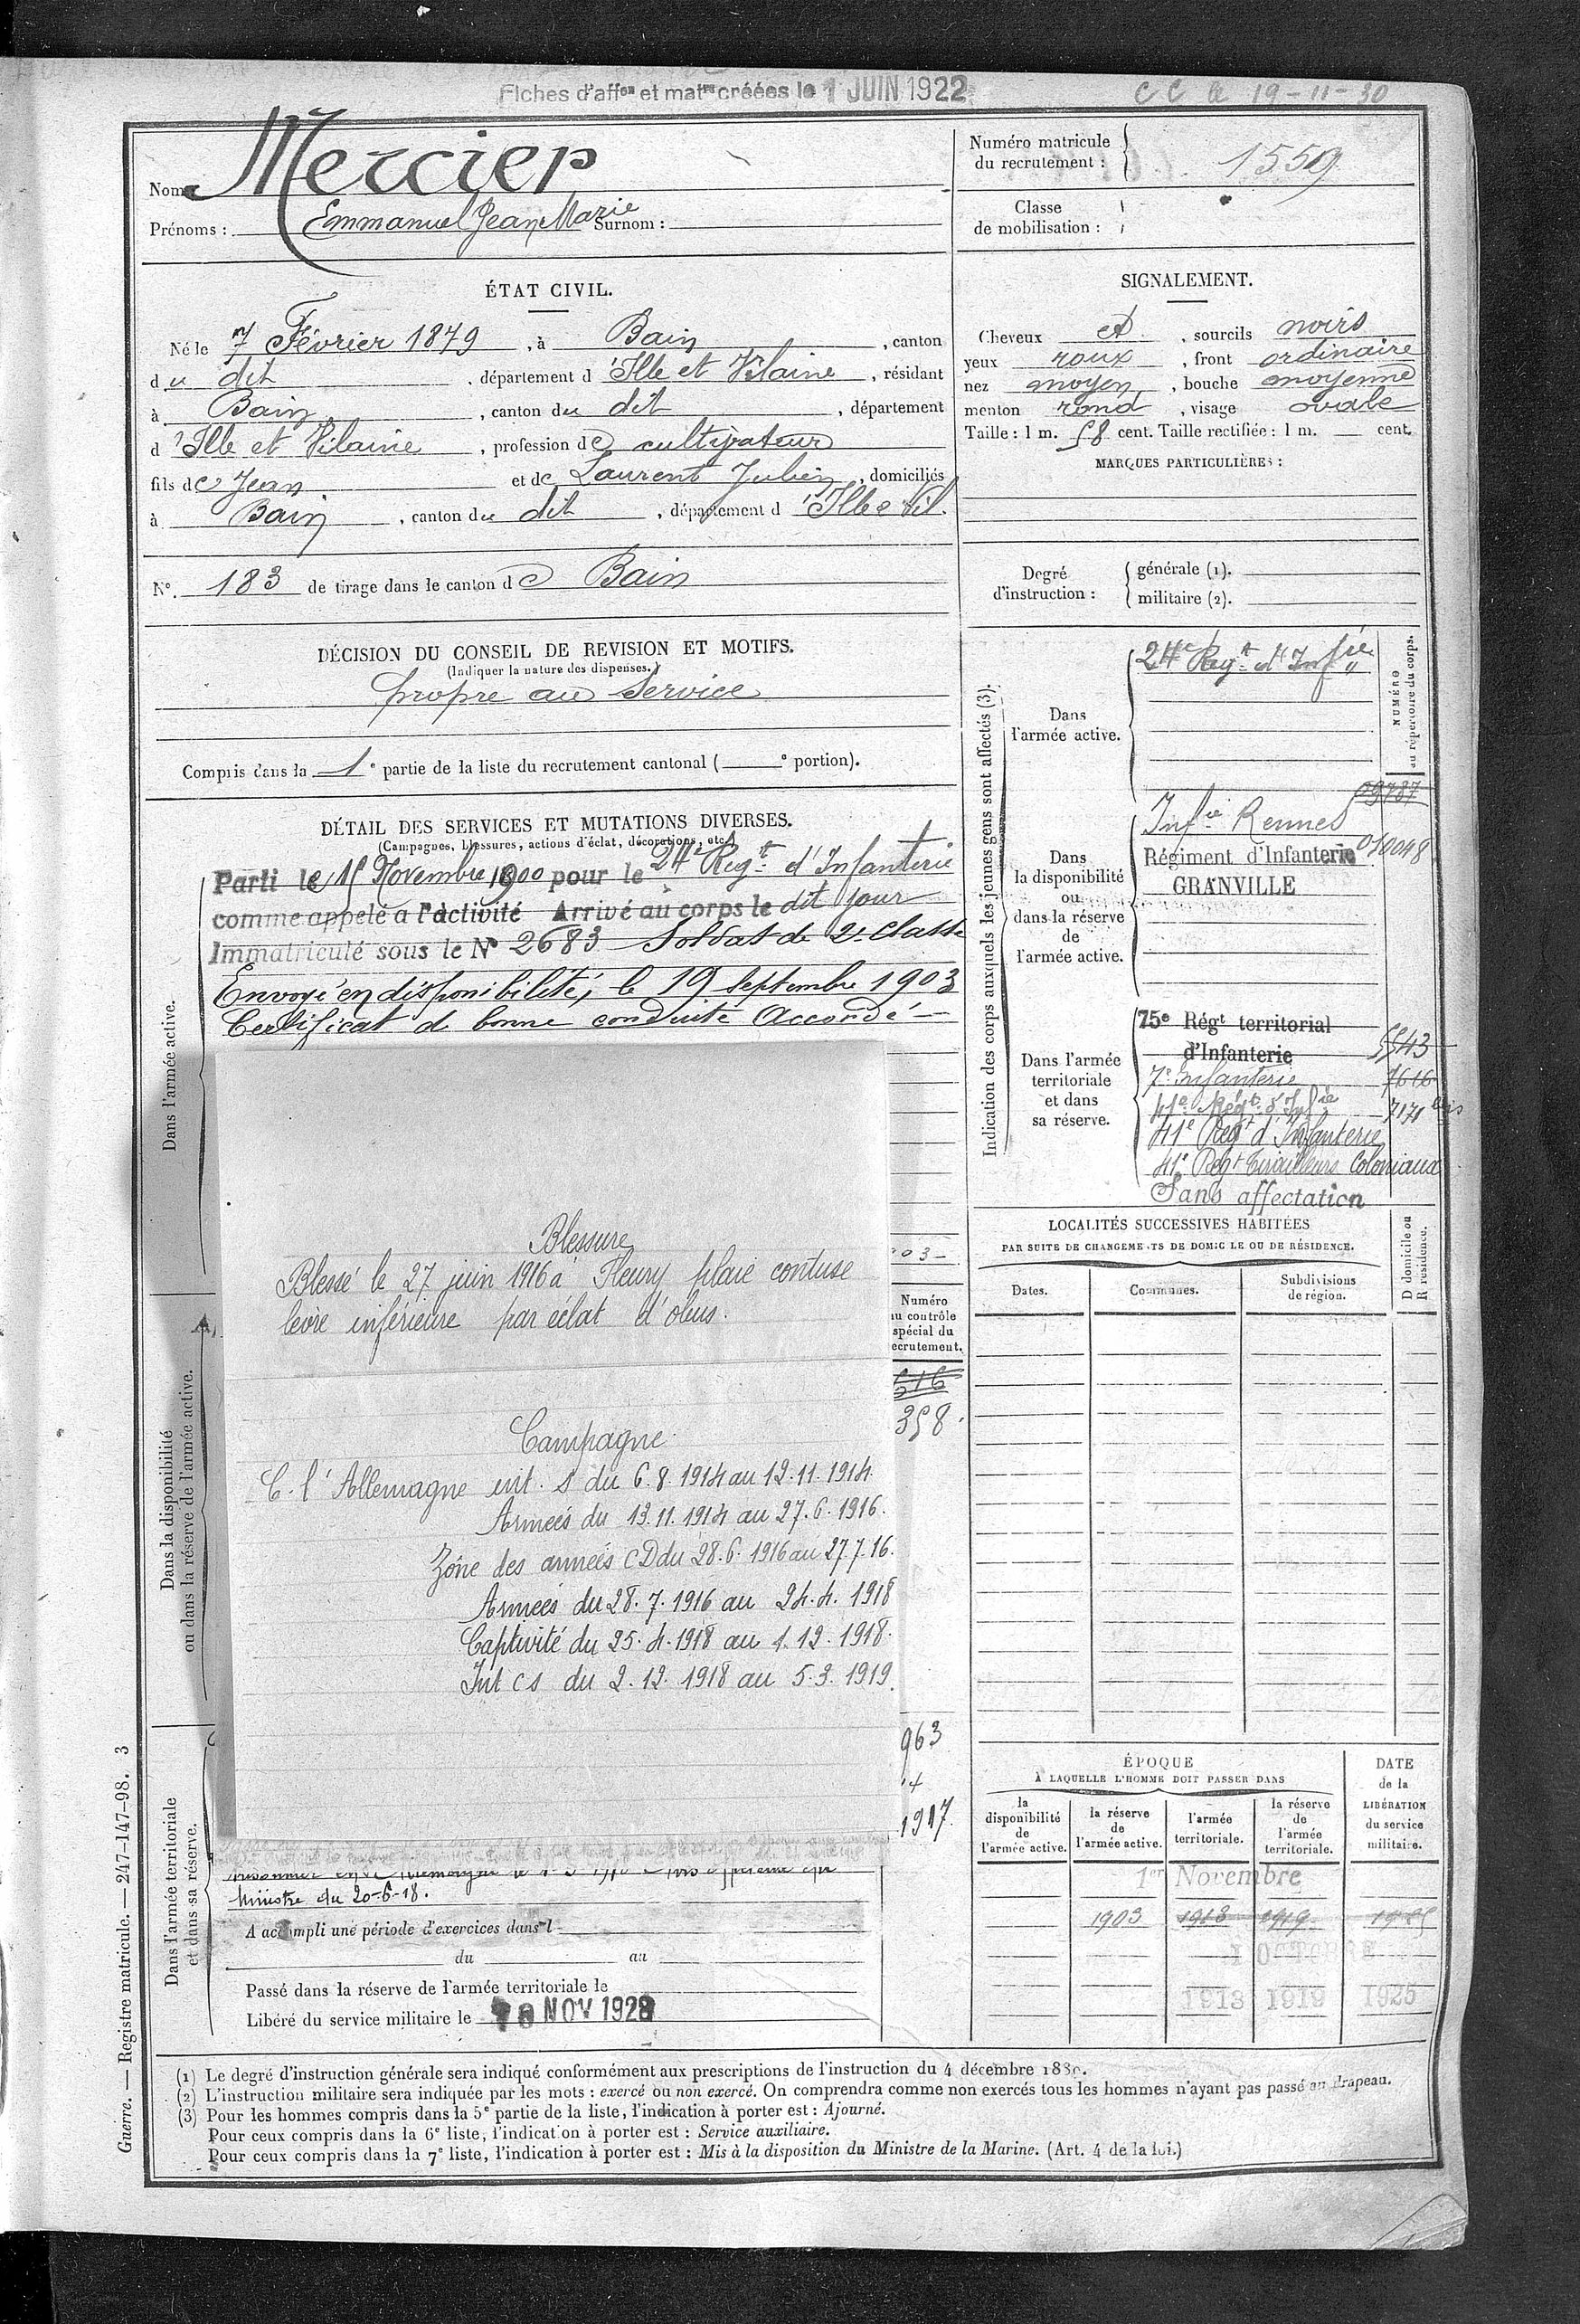 Fiches d'affon et matres créées le 1 JUIN 1922
C C le 19-11-30
Nom : Mercier
Prénoms : Emmanuel Jean Marie Surnom :
Numéro matricule
du recrutement : 1559
Classe
de mobilisation :
ÉTAT CIVIL.
Né le 7 Février 1879, à Bain, canton
du dit, département d'Ille et Vilaine, résidant
à Bain, canton du dit, département
d'Ille et Vilaine, profession de cultivateur
fils de Jean et de Laurent Julien, domiciliés
à Bain, canton du dit, département d'Ille e Vil.
N° 183 de tirage dans le canton de Bain
SIGNALEMENT.
Cheveux et, sourcils noirs
yeux roux, front ordinaire
nez moyen, bouche moyenne
menton rond, visage ovale
Taille : 1 m. 58 cent. Taille rectifiée : 1 m. — cent.
MARQUES PARTICULIÈRES :
Degré
d'instruction :
générale (1).
militaire (2).
DÉCISION DU CONSEIL DE REVISION ET MOTIFS.
(Indiquer la nature des dispenses.)
propre au service
Compris dans la 1e partie de la liste du recrutement cantonal ( e portion).
DÉTAIL DES SERVICES ET MUTATIONS DIVERSES.
(Campagnes, blessures, actions d'éclat, décorations, etc.)
Dans l'armée active.
Parti le 15 Novembre 1900 pour le 24e Regt d'Infanterie
comme appelé à l'activité Arrivé au corps le dit jour
Immatriculé sous le N° 2683 Soldat de 2e classe
Envoyé en disponibilité, le 19 septembre 1903
Certificat de bonne conduite Accordé —
Blessure
Blessé le 27 juin 1916 a Fleury plaie contuse
levre inférieure par éclat d'obus.
Campagne
C. l'Allemagne int. s du 6.8.1914 au 12.11.1914
Armées du 13.11.1914 au 27.6.1916.
Zône des armées CD du 28.6.1916 au 27.7.16.
Armées du 28.7.1916 au 24.4.1918
Captivité du 25.4.1918 au 1.12.1918.
Int cs du 2.12.1918 au 5.3.1919.
03-
Numéro
au contrôle
spécial du
recrutement.
616
358.
963
14
1917.
Dans la disponibilité
ou dans la réserve de l'armée active.
Dans l'armée territoriale
et dans sa réserve.
Ministre du 20-6-18.
A accompli une période d'exercices dans l
du au
Passé dans la réserve de l'armée territoriale le
Libéré du service militaire le 10 NOV 1928
Indication des corps auxquels les jeunes gens sont affectés (3).
NUMÉRO
au répertoire du corps.
Dans
l'armée active.
24e Regt d'Infie
Dans
la disponibilité
ou
dans la réserve
de
l'armée active.
09787
Infie Rennes
Régiment d'Infanterie 010048
GRANVILLE
Dans l'armée
territoriale
et dans
sa réserve.
75e Régt territorial
d'Infanterie 5543
7e Infanterie 7616
41e Régt d'Infie 7171 bis
41e Regt d'Infanterie
41e Régt Tirailleurs Coloniaux
Sans affectation
LOCALITÉS SUCCESSIVES HABITÉES
PAR SUITE DE CHANGEMENTS DE DOMICILE OU DE RÉSIDENCE.
Dates. Communes. Subdivisions
de région.
D domicile ou
R résidence.
ÉPOQUE
À LAQUELLE L'HOMME DOIT PASSER DANS
la
disponibilité
de
l'armée active.
la réserve
de
l'armée active.
l'armée
territoriale.
la réserve
de
l'armée
territoriale.
DATE
de la
LIBÉRATION
du service
militaire.
1er Novembre
1903 1913 1919 1925
1913 1919 1925
(1) Le degré d'instruction générale sera indiqué conformément aux prescriptions de l'instruction du 4 décembre 1889.
(2) L'instruction militaire sera indiquée par les mots : exercé ou non exercé. On comprendra comme non exercés tous les hommes n'ayant pas passé au drapeau.
(3) Pour les hommes compris dans la 5e partie de la liste, l'indication à porter est : Ajourné.
Pour ceux compris dans la 6e liste, l'indication à porter est : Service auxiliaire.
Pour ceux compris dans la 7e liste, l'indication à porter est : Mis à la disposition du Ministre de la Marine. (Art. 4 de la loi.)
Guerre. — Registre matricule. — 247-147-98. 3